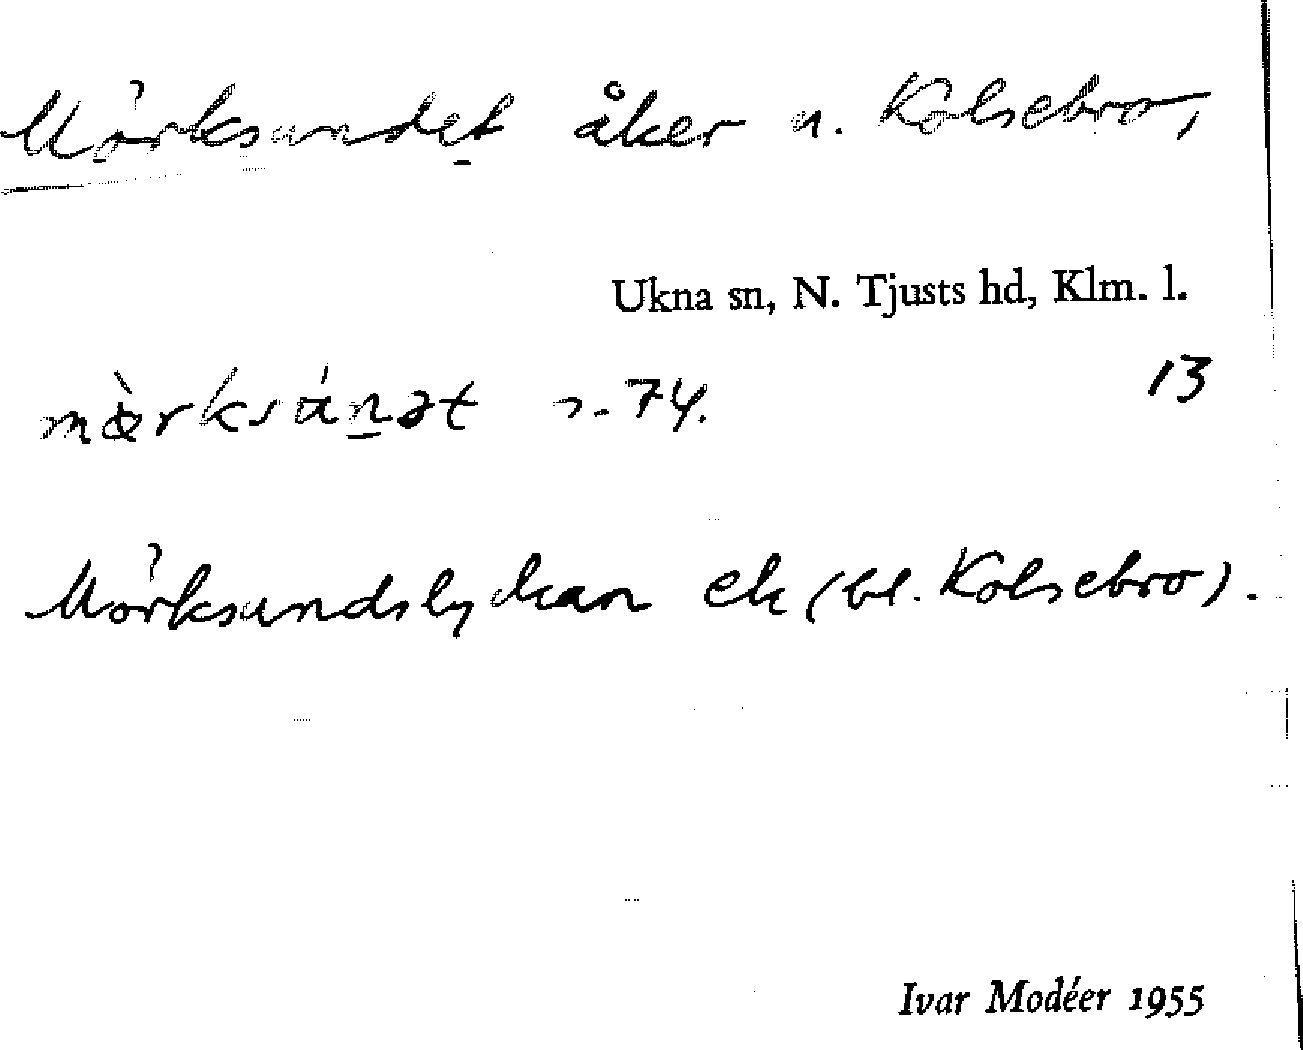 Mörksundet åker n. Kolsebro,
Ukna sn, N. Tjusts hd, Klm. l.
13
74.
Mörksundslyckan ek (bl. Kolsebro).
Ivar Modéer 1955